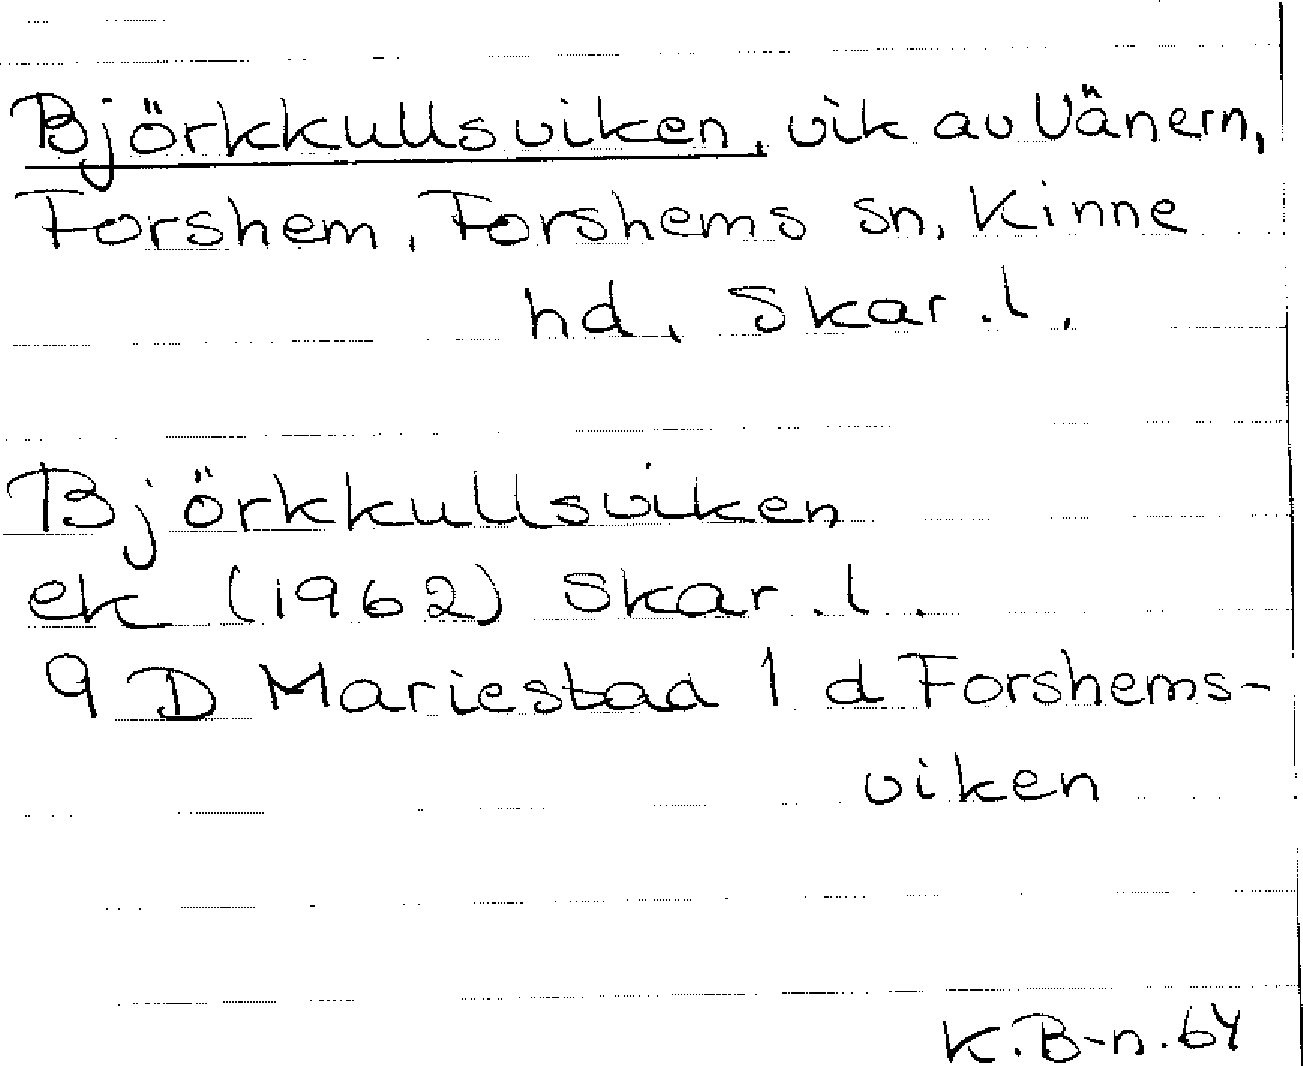 Björkkullsviken, vik av Vänern,
Forshem, Forshems sn, Kinne
hd, Skar.l.
Björkkullsviken
ek (1962) Skar.l.
9 D Mariestad 1 d Forshems-
viken
K.B-n.64